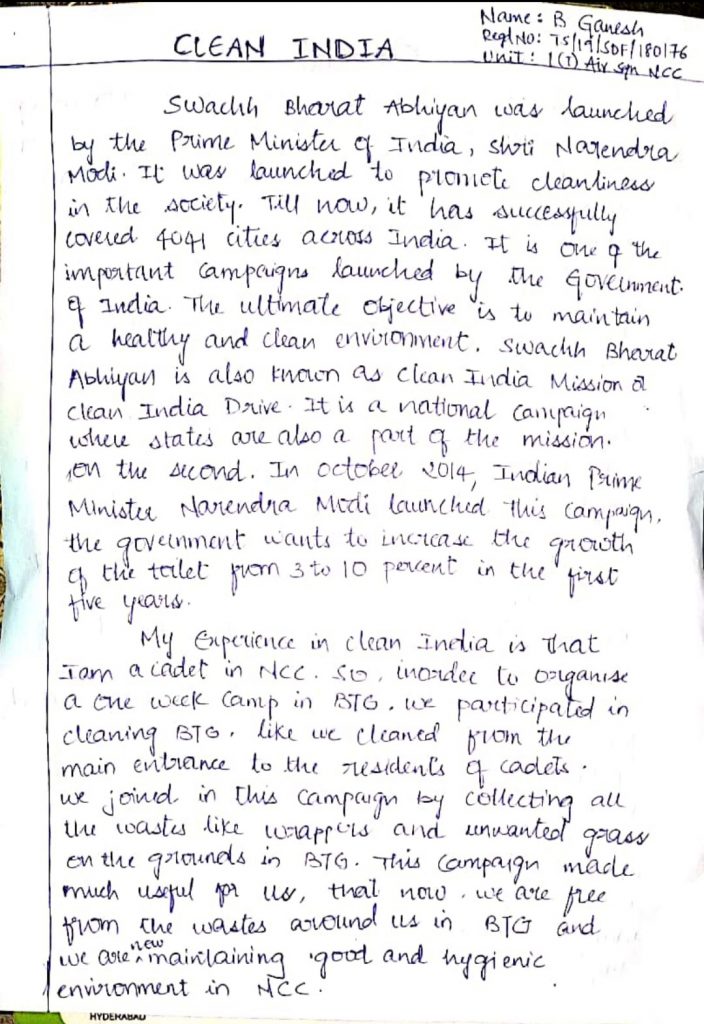 Name: B Ganesh
Regl No: TS/19/SDF/180176
Unit: 1(T) Air Sqn NCC
CLEAN INDIA
Swachh Bharat Abhiyan was launched
by the Prime Minister of India, Shri Narendra
Modi. It was launched to promote cleanliness
in the society. Till now, it has successfully
covered 4041 cities across India. It is one of the
important campaigns launched by the Government.
of India. The ultimate objective is to maintain
a healthy and clean environment. Swachh Bharat
Abhiyan is also known as Clean India Mission &
Clean India Drive. It is a national campaign
where states are also a part of the mission.
on the second. In October 2014, Indian Prime
Minister Narendra Modi launched this campaign.
the government wants to increase the growth
of the toilet from 3 to 10 percent in the first
five years.
My Experience in clean India is that
I am a cadet in NCC. So, inorder to organise
a one week camp in BTG. we participated in
cleaning BTG. like we cleaned from the
main entrance to the residents of cadets.
we joined in this campaign by collecting all
the wastes like wrappers and unwanted grass
on the grounds in BTG. This campaign made
much useful for us, that now, we are free
from the wastes around us in BTG and
we are new maintaining good and hygienic
environment in NCC.
HYDERABAD